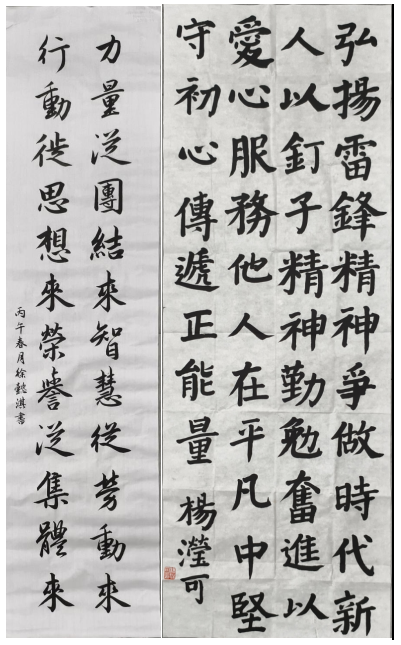 弘揚雷鋒精神爭做時代新
人以釘子精神勤勉奮進以
愛心服務他人在平凡中堅
守初心傳遞正能量 楊瀅可
力量從團結來智慧從勞動來
行動從思想來榮譽從集體來
丙午春月徐懿淇書